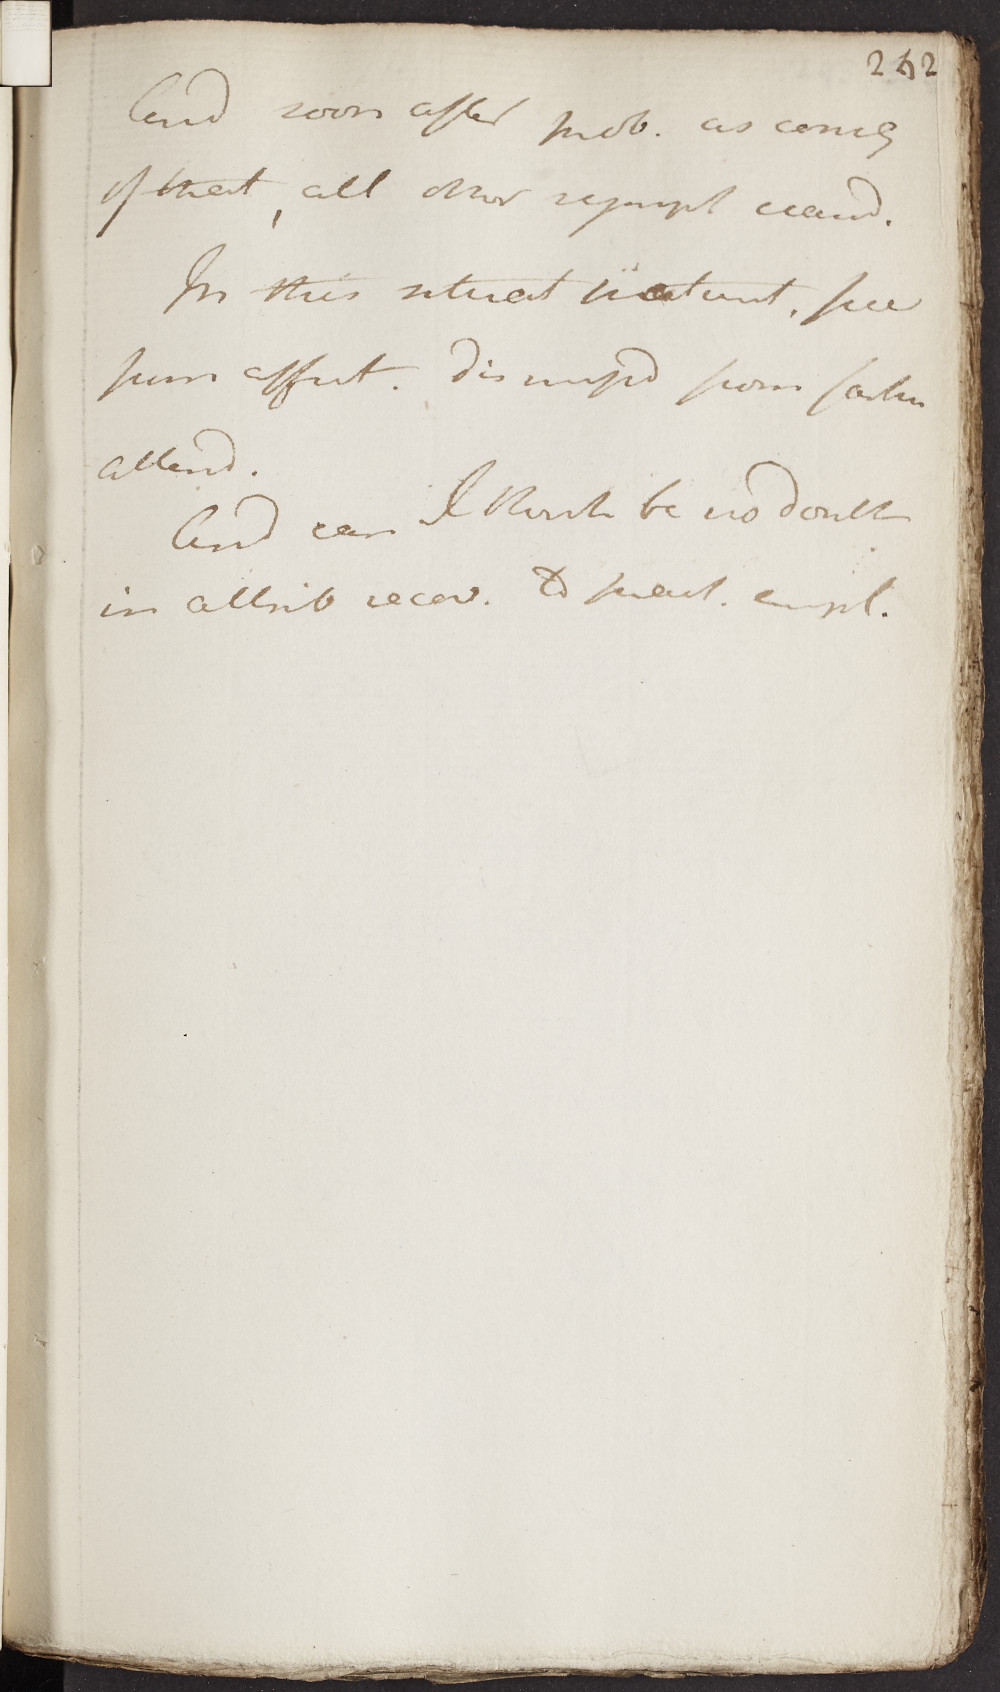 262
And soon after prob. as conseq
of that, all other sympt ceasd.
In this situat treatmt, free
from affect. dismissd from farther
attend.
And can I think be no doubt
in attrib recov. to pract. empl.